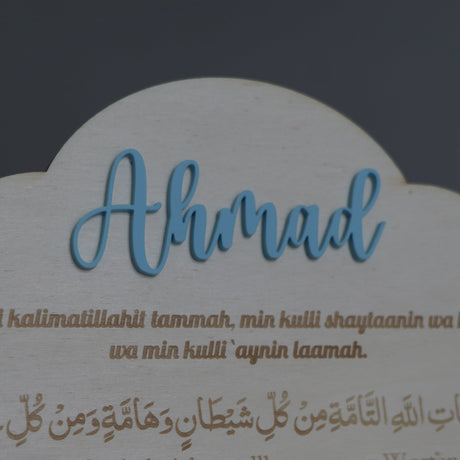 Ahmad
kalimatillahit tammah, min kulli shaytaanin wa
wa min kulli `aynin laamah.
اللَّهِ التَّامَّةِ مِنْ كُلِّ شَيْطَانٍ وَهَامَّةٍ وَمِنْ كُلِّ